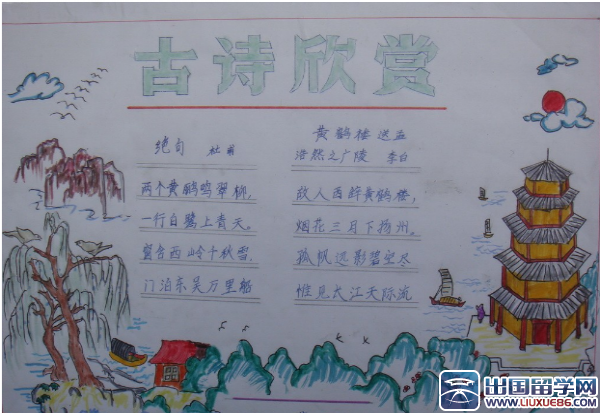 古诗欣赏
绝句 杜甫
两个黄鹂鸣翠柳,
一行白鹭上青天。
窗含西岭千秋雪.
门泊东吴万里船
黄鹤楼送孟
浩然之广陵 李白
故人西辞黄鹤楼,
烟花三月下扬州。
孤帆远影碧空尽
惟见长江天际流
出国留学网
WWW.LIUXUE86.COM